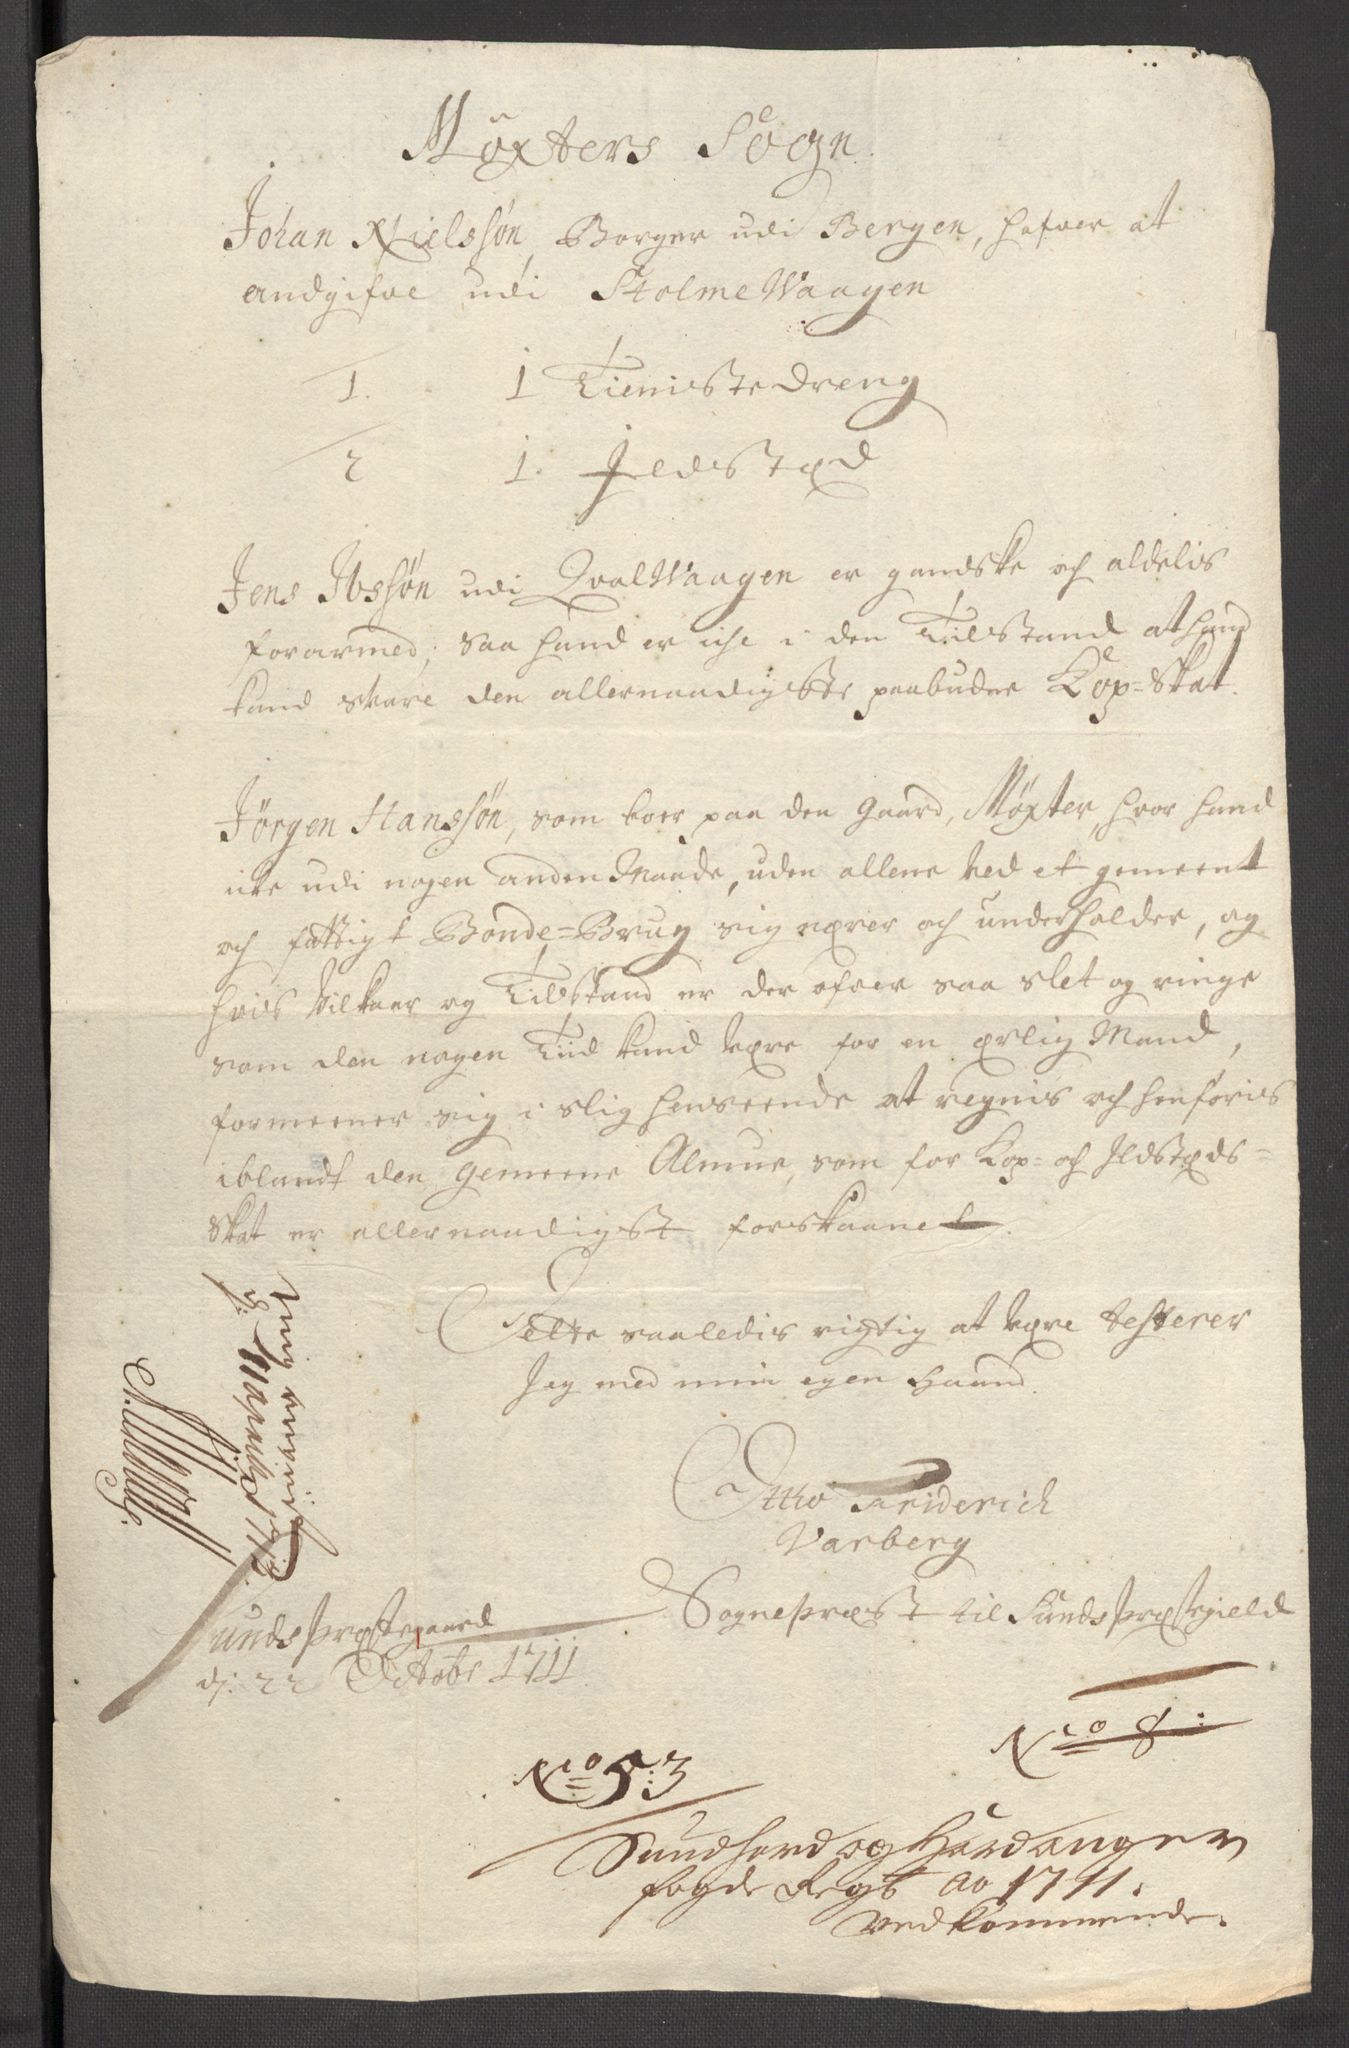 Møxters Sogn.
Johan Nielssøn, Borger udi Bergen, hafver at
andgifve udi StolmeWaagen
1. 1 Tieniste Dreng
2 1. Ildstæd
Jens Ibssøn udi QvalWaagen er gandske och aldelis
forarmed, saa hand er iche i den Tilstand at hand
kand svare den allernaadigste paabudne Kop-Skat.
Jörgen Hanssøn, som boer paa den Gaard, Møxter, hvor hand
icke udi nogen anden Maade, uden allene ved et gemeent
och fattigt Bonde-Brug sig nærer och underholder, og
hvis Vilkaar og Tilstand er der ofver saa slet og ringe
som den nogen Tiid kand være for en ærlig Mand,
formeener sig i slig henseende at regnis och henføris
iblandt den gemeene Almue, som for Kop- och Ildstæds-
Skat er allernaadigst forskaanet.
Dette saaledis rigtig at være testerer
Jeg med min egen Haand.
Otto Friderich
Varberg
Sognepræst til Sunds Præstegield
Sunds Præstegaard
d: 22 Octobr 1711
No 8:
No 5:3
Sundhord og Hardanger
fogde Regsb ao 1711.
vedkommende.